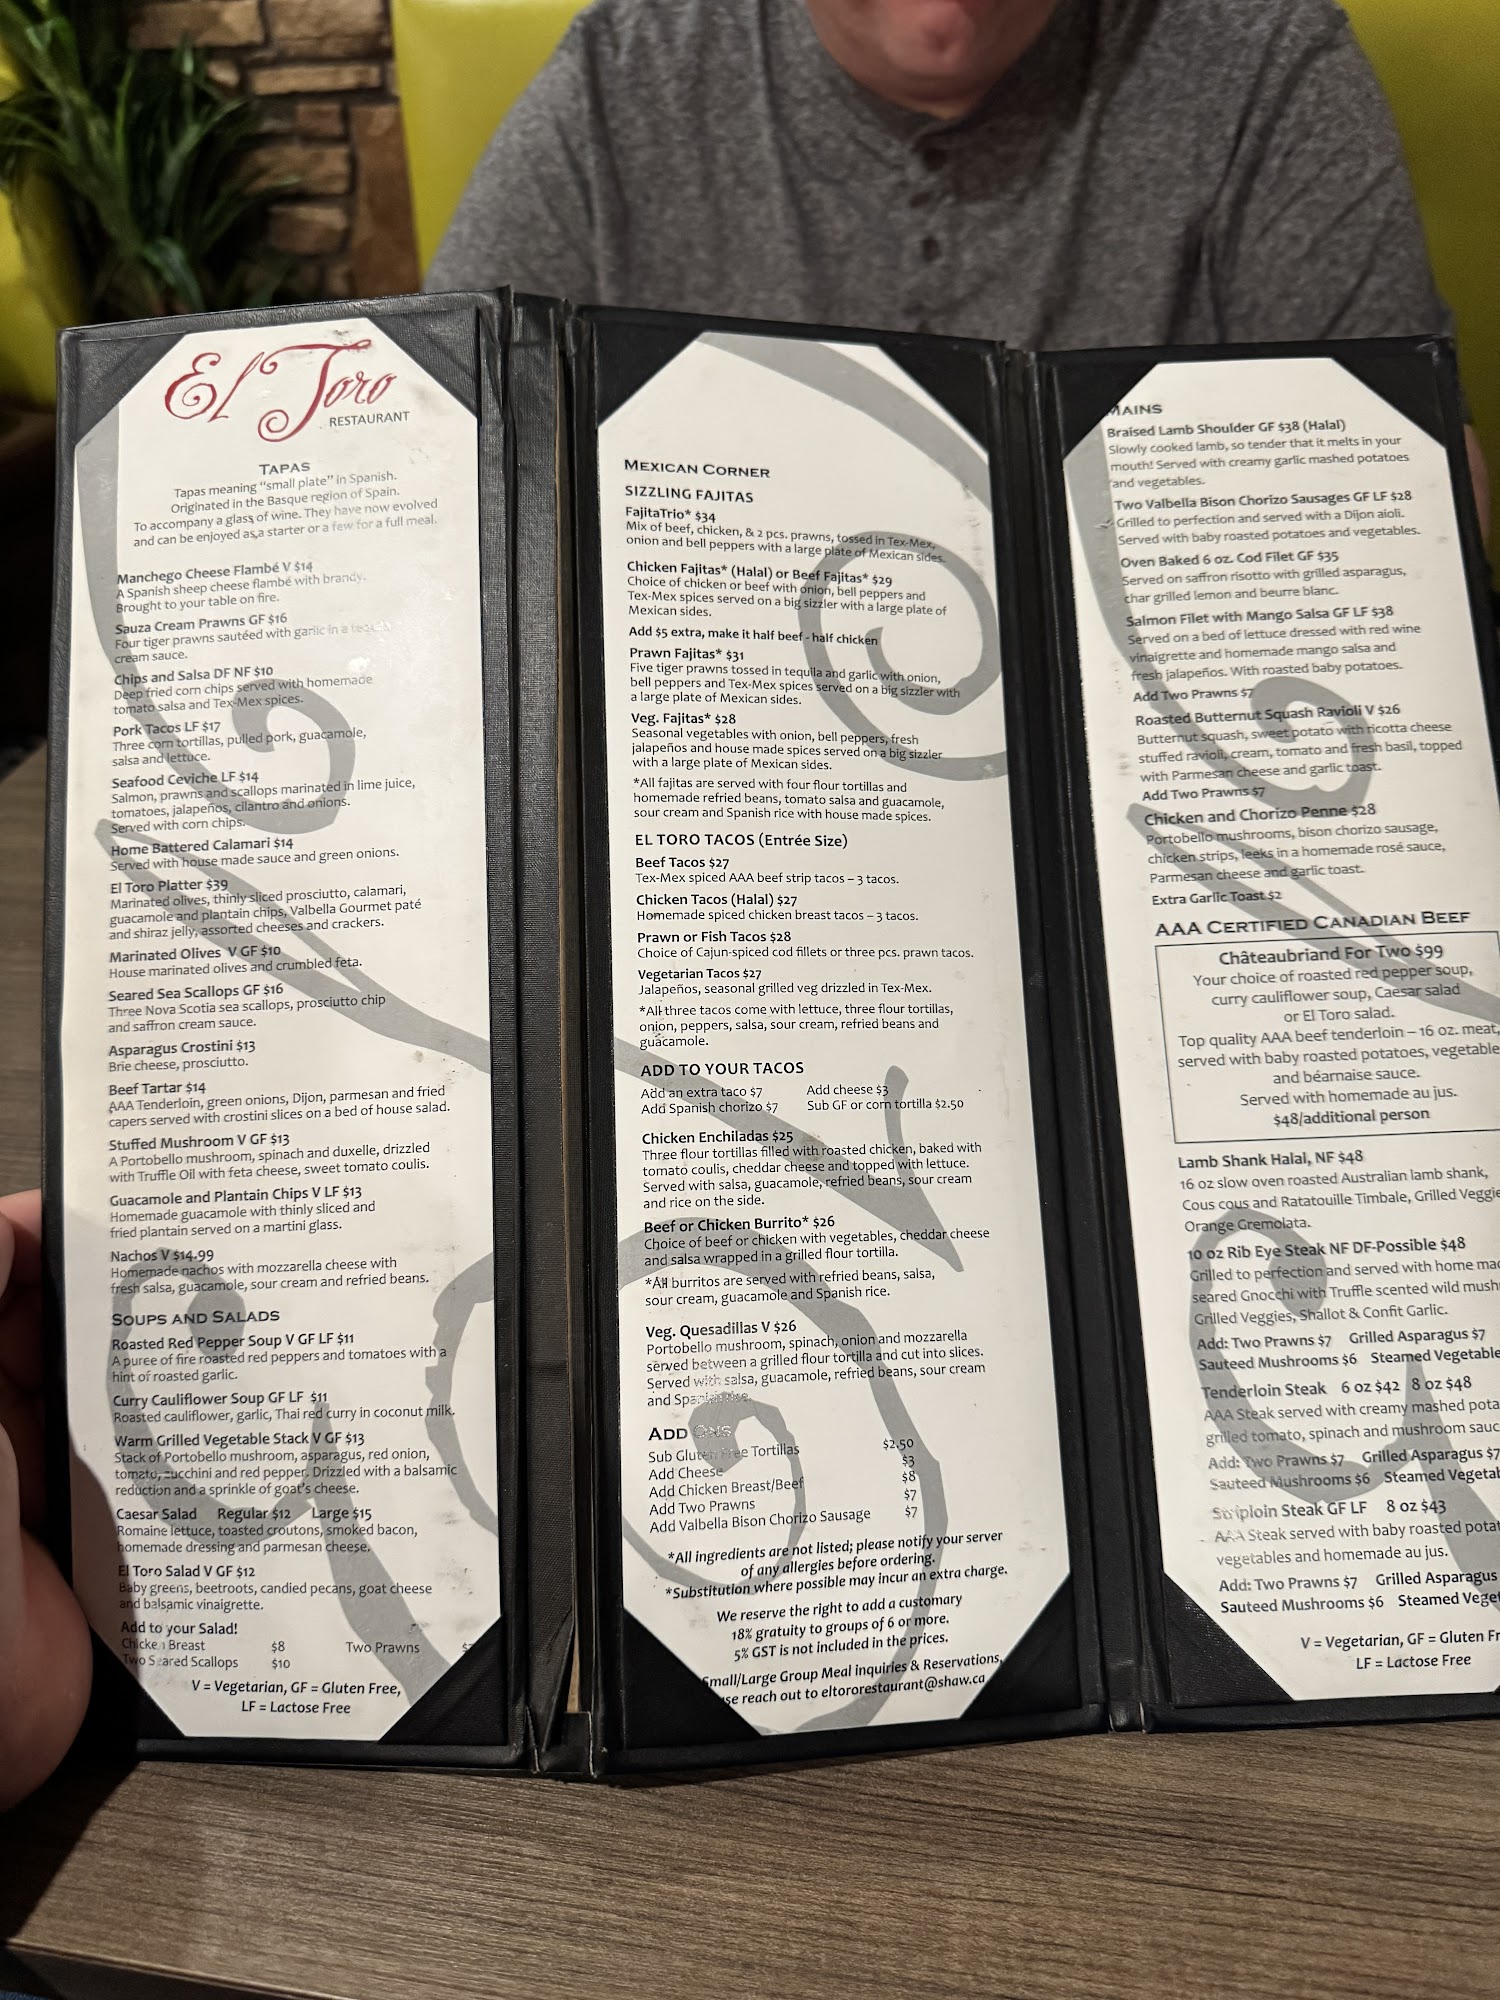 El Toro
RESTAURANT
TAPAS
Tapas meaning "small plate" in Spanish.
Originated in the Basque region of Spain.
To accompany a glass of wine. They have now evolved
and can be enjoyed as a starter or a few for a full meal.
Manchego Cheese Flambé V $14
A Spanish sheep cheese flambé with brandy.
Brought to your table on fire.
Sauza Cream Prawns GF $16
Four tiger prawns sautéed with garlic in a tequila
cream sauce.
Chips and Salsa DF NF $10
Deep fried corn chips served with homemade
tomato salsa and Tex-Mex spices.
Pork Tacos LF $17
Three corn tortillas, pulled pork, guacamole,
salsa and lettuce.
Seafood Ceviche LF $14
Salmon, prawns and scallops marinated in lime juice,
tomatoes, jalapeños, cilantro and onions.
Served with corn chips.
Home Battered Calamari $14
Served with house made sauce and green onions.
El Toro Platter $39
Marinated olives, thinly sliced prosciutto, calamari,
guacamole and plantain chips, Valbella Gourmet paté
and shiraz jelly, assorted cheeses and crackers.
Marinated Olives V GF $10
House marinated olives and crumbled feta.
Seared Sea Scallops GF $16
Three Nova Scotia sea scallops, prosciutto chip
and saffron cream sauce.
Asparagus Crostini $13
Brie cheese, prosciutto.
Beef Tartar $14
AAA Tenderloin, green onions, Dijon, parmesan and fried
capers served with crostini slices on a bed of house salad.
Stuffed Mushroom V GF $13
A Portobello mushroom, spinach and duxelle, drizzled
with Truffle Oil with feta cheese, sweet tomato coulis.
Guacamole and Plantain Chips V LF $13
Homemade guacamole with thinly sliced and
fried plantain served on a martini glass.
Nachos V $14.99
Homemade nachos with mozzarella cheese with
fresh salsa, guacamole, sour cream and refried beans.
SOUPS AND SALADS
Roasted Red Pepper Soup V GF LF $11
A puree of fire roasted red peppers and tomatoes with a
hint of roasted garlic.
Curry Cauliflower Soup GF LF $11
Roasted cauliflower, garlic, Thai red curry in coconut milk.
Warm Grilled Vegetable Stack V GF $13
Stack of Portobello mushroom, asparagus, red onion,
tomato, zucchini and red pepper. Drizzled with a balsamic
reduction and a sprinkle of goat's cheese.
Caesar Salad Regular $12 Large $15
Romaine lettuce, toasted croutons, smoked bacon,
homemade dressing and parmesan cheese.
El Toro Salad V GF $12
Baby greens, beetroots, candied pecans, goat cheese
and balsamic vinaigrette.
Add to your Salad!
Chicken Breast $8 Two Prawns
Two Seared Scallops $10
V = Vegetarian, GF = Gluten Free,
LF = Lactose Free
MEXICAN CORNER
SIZZLING FAJITAS
FajitaTrio* $34
Mix of beef, chicken, & 2 pcs. prawns, tossed in Tex-Mex,
onion and bell peppers with a large plate of Mexican sides.
Chicken Fajitas* (Halal) or Beef Fajitas* $29
Choice of chicken or beef with onion, bell peppers and
Tex-Mex spices served on a big sizzler with a large plate of
Mexican sides.
Add $5 extra, make it half beef - half chicken
Prawn Fajitas* $31
Five tiger prawns tossed in tequila and garlic with onion,
bell peppers and Tex-Mex spices served on a big sizzler with
a large plate of Mexican sides.
Veg. Fajitas* $28
Seasonal vegetables with onion, bell peppers, fresh
jalapeños and house made spices served on a big sizzler
with a large plate of Mexican sides.
*All fajitas are served with four flour tortillas and
homemade refried beans, tomato salsa and guacamole,
sour cream and Spanish rice with house made spices.
EL TORO TACOS (Entrée Size)
Beef Tacos $27
Tex-Mex spiced AAA beef strip tacos – 3 tacos.
Chicken Tacos (Halal) $27
Homemade spiced chicken breast tacos – 3 tacos.
Prawn or Fish Tacos $28
Choice of Cajun-spiced cod fillets or three pcs. prawn tacos.
Vegetarian Tacos $27
Jalapeños, seasonal grilled veg drizzled in Tex-Mex.
*All three tacos come with lettuce, three flour tortillas,
onion, peppers, salsa, sour cream, refried beans and
guacamole.
ADD TO YOUR TACOS
Add an extra taco $7 Add cheese $3
Add Spanish chorizo $7 Sub GF or corn tortilla $2.50
Chicken Enchiladas $25
Three flour tortillas filled with roasted chicken, baked with
tomato coulis, cheddar cheese and topped with lettuce.
Served with salsa, guacamole, refried beans, sour cream
and rice on the side.
Beef or Chicken Burrito* $26
Choice of beef or chicken with vegetables, cheddar cheese
and salsa wrapped in a grilled flour tortilla.
*All burritos are served with refried beans, salsa,
sour cream, guacamole and Spanish rice.
Veg. Quesadillas V $26
Portobello mushroom, spinach, onion and mozzarella
served between a grilled flour tortilla and cut into slices.
Served with salsa, guacamole, refried beans, sour cream
and Spanish rice.
ADD ONS
Sub Gluten Free Tortillas $2.50
Add Cheese $3
Add Chicken Breast/Beef $8
Add Two Prawns $7
Add Valbella Bison Chorizo Sausage $7
*All ingredients are not listed; please notify your server
of any allergies before ordering.
*Substitution where possible may incur an extra charge.
We reserve the right to add a customary
18% gratuity to groups of 6 or more.
5% GST is not included in the prices.
Small/Large Group Meal inquiries & Reservations,
se reach out to eltororestaurant@shaw.ca
MAINS
Braised Lamb Shoulder GF $38 (Halal)
Slowly cooked lamb, so tender that it melts in your
mouth! Served with creamy garlic mashed potatoes
and vegetables.
Two Valbella Bison Chorizo Sausages GF LF $28
Grilled to perfection and served with a Dijon aioli.
Served with baby roasted potatoes and vegetables.
Oven Baked 6 oz. Cod Filet GF $35
Served on saffron risotto with grilled asparagus,
char grilled lemon and beurre blanc.
Salmon Filet with Mango Salsa GF LF $38
Served on a bed of lettuce dressed with red wine
vinaigrette and homemade mango salsa and
fresh jalapeños. With roasted baby potatoes.
Add Two Prawns $7
Roasted Butternut Squash Ravioli V $26
Butternut squash, sweet potato with ricotta cheese
stuffed ravioli, cream, tomato and fresh basil, topped
with Parmesan cheese and garlic toast.
Add Two Prawns $7
Chicken and Chorizo Penne $28
Portobello mushrooms, bison chorizo sausage,
chicken strips, leeks in a homemade rosé sauce,
Parmesan cheese and garlic toast.
Extra Garlic Toast $2
AAA CERTIFIED CANADIAN BEEF
Châteaubriand For Two $99
Your choice of roasted red pepper soup,
curry cauliflower soup, Caesar salad
or El Toro salad.
Top quality AAA beef tenderloin – 16 oz. meat,
served with baby roasted potatoes, vegetable
and béarnaise sauce.
Served with homemade au jus.
$48/additional person
Lamb Shank Halal, NF $48
16 oz slow oven roasted Australian lamb shank,
Cous cous and Ratatouille Timbale, Grilled Veggie
Orange Gremolata.
10 oz Rib Eye Steak NF DF-Possible $48
Grilled to perfection and served with home mad
seared Gnocchi with Truffle scented wild mush
Grilled Veggies, Shallot & Confit Garlic.
Add: Two Prawns $7 Grilled Asparagus $7
Sauteed Mushrooms $6 Steamed Vegetable
Tenderloin Steak 6 oz $42 8 oz $48
AAA Steak served with creamy mashed pota
grilled tomato, spinach and mushroom sauc
Add: Two Prawns $7 Grilled Asparagus $7
Sauteed Mushrooms $6 Steamed Vegetab
Striploin Steak GF LF 8 oz $43
AAA Steak served with baby roasted potat
vegetables and homemade au jus.
Add: Two Prawns $7 Grilled Asparagus
Sauteed Mushrooms $6 Steamed Veget
V = Vegetarian, GF = Gluten Fr
LF = Lactose Free